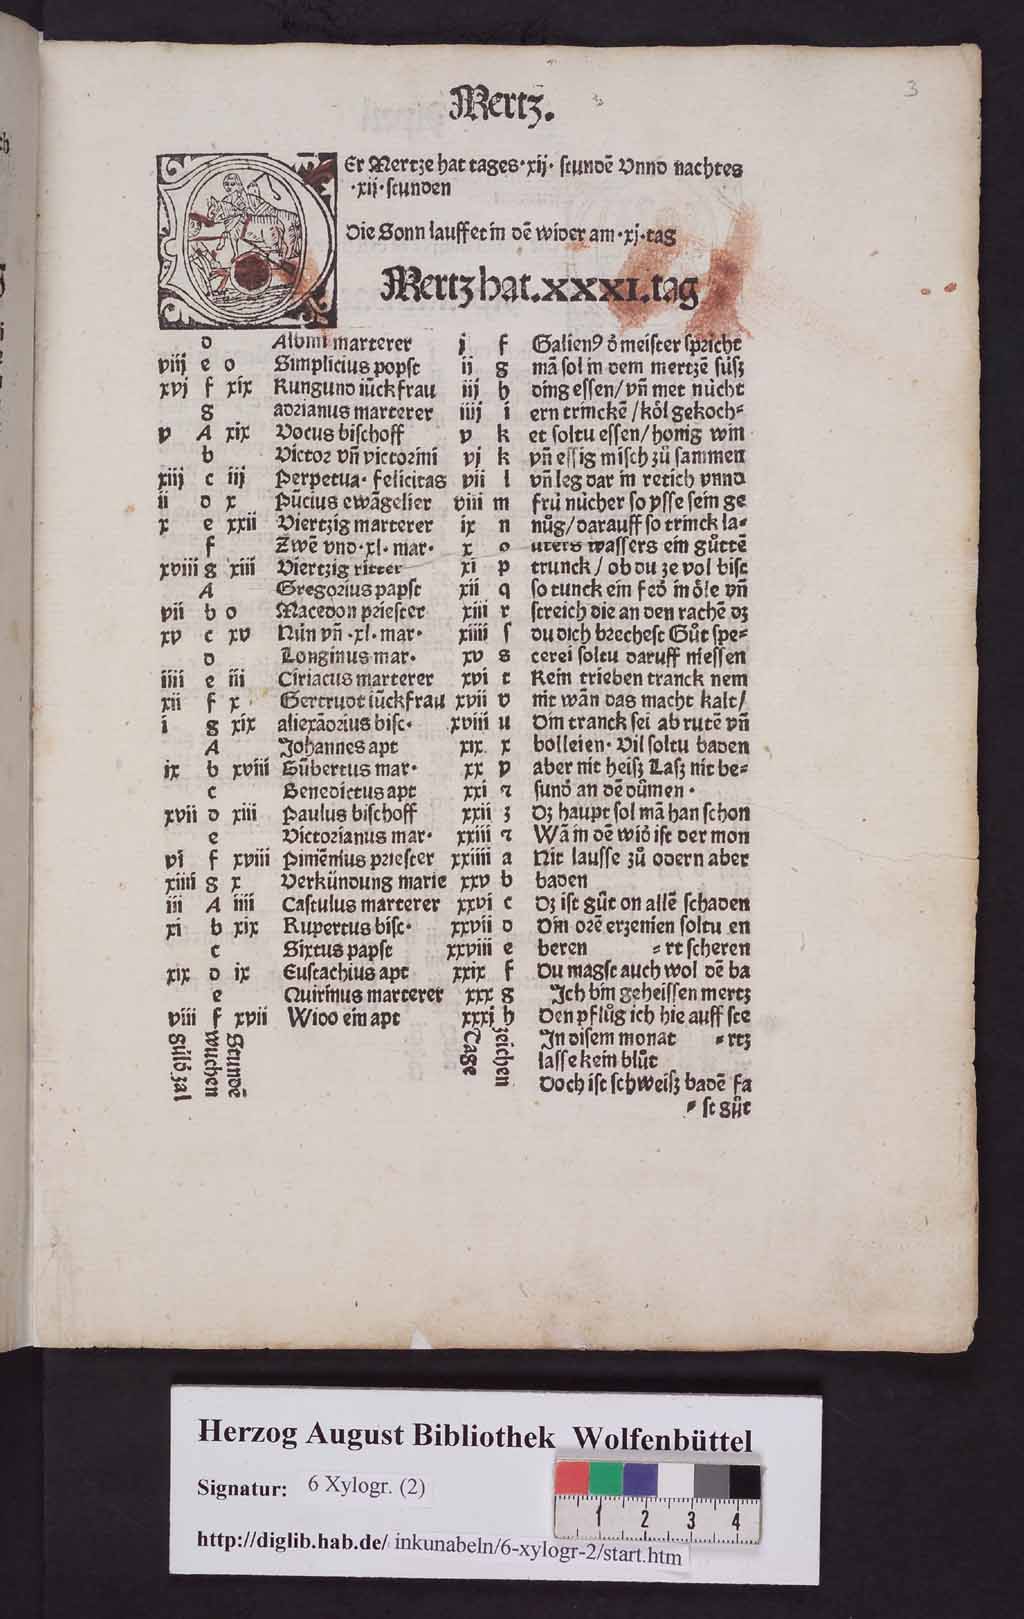 3
Mertz.
Er Mertze hat tages·xij· stundē Vnnd nachtes
·xij·stunden
Die Sonn lauffet in dē wider am·xj·tag
Mertz hat.XXXI.tag
d Albini marterer j f Galienꝰ d̕ meister spricht
viij e o Simplicius popst ij g mā sol in dem mertzē süsz
xvj f xix Kungund iūckfrau iij h ding essen/ vn̄ met nücht
g adrianus marterer iiij i ern trinckē /köl gekoch⸗
v A xix Vocus bischoff v k et soltu essen/ honig win
b Victor vn̄ victorini vj k vn̄ essig misch zů sammen
xiij c iij Perpetua· felicitas vii l vn̄ leg dar in retich vnnd
ii d x Pūcius ewāgelier viii m frü nücher so ysse sein ge
x e xxii Viertzig marterer ix n nůg/ darauff so trinck la⸗
f Zwē vnd·xl· mar· x o uters wassers ein gůttē
xviii g xiii Viertzig ritter xi p trunck/ ob du ze vol bist
A Gregorius papst xii q so tunck ein fed̕ in öle vn̄
vii b o Macedon priester xiii r streich die an den rachē dz
xv c xv Nün vn̄ ·xl· mar· xiiii ſ du dich brechest Gůt spe⸗
d Longinus mar· xv s cerei soltu daruff niessen
iiii e iii Ciriacus marterer xvi t Kein trieben tranck nem
xii f x Gertrudt iūckfrau xvii v nit wān das macht kalt/
i g xix aliexādrius bisc· xviii u Din tranck sei ab rutē vn̄
A Johannes apt xix x bolleien· Vil soltu baden
ix b xviii Gūbertus mar· xx y aber nit heisz Lasz nit be⸗
c Benedictus apt xxi ꝛ sund̕ an dē dümen·
xvii d xiii Paulus bischoff xxii z Dz haupt sol mā han schon
e Victorianus mar· xxiii ꝛ Wā in dē wid̕ ist der mon
vi f xviii Pimēnius priester xxiiii a Nit lausse zů odern aber
xiiii g x Verkündung marie xxv b baden
iii A iiii Castulus marterer xxvi c Dz ist gůt on allē schaden
xi b xix Rupertus bisc· xxvii d Din orē erzenien soltu en
c Sixtus papst xxviii e beren ⸗rt scheren
xix d ix Eustachius apt xxix f Du magst auch wol dē ba
e Quirinus marterer xxx g Ich bin geheissen mertz
viii f xvii Wido ein apt xxxj h Den pflůg ich hie auff ste
In disem monat ⸗rtz
lasse kein blůt
Doch ist schweisz badē fa
⸗ st gůt
güld̕ zal
wuchen
Stundē
Tage
zeichen
Herzog August Bibliothek Wolfenbüttel
Signatur: 6 Xylogr. (2)
http://diglib.hab.de/ inkunabeln/6-xylogr-2/start.htm
1 2 3 4